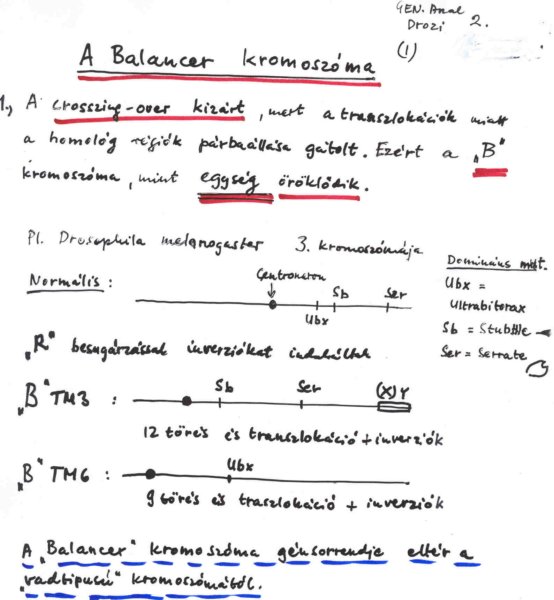 GEN. Anal
Drozi 2.
(1)
A Balancer kromoszóma
1, A crossing-over kizárt, mert a transzlokációk miatt
a homológ régiók párbaállása gátolt. Ezért a „B"
kromoszóma, mint egység öröklődik.
Pl. Drosophila melanogaster 3. kromoszómája
Domináns mut.
Normális :
Centroneron
Sb
Ser
Ubx
Ubx =
Ultrabitorax
Sb = Stubble
Ser = Serrate
„R" besugárzással inverziókat indukáltak
„B" TM3 :
Sb
Ser
(X)Y
12 törés és transzlokáció + inverziók
„B" TM6 :
Ubx
9 törés és traszlokáció + inverziók
A „Balancer" kromoszóma génsorrendje eltér a
„vadtipusú" kromoszómától.